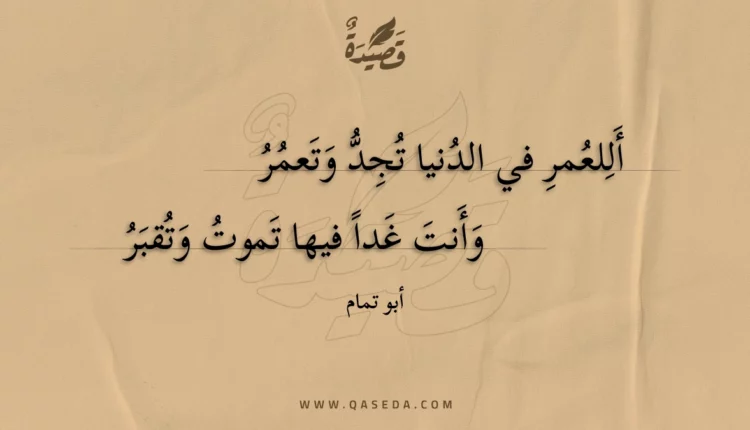 قَصِيدَةٌ
أَلِلعُمرِ في الدُنيا تُجِدُّ وَتَعمُرُ
وَأَنتَ غَداً فيها تَموتُ وَتُقبَرُ
أبو تمام
WWW.QASEDA.COM